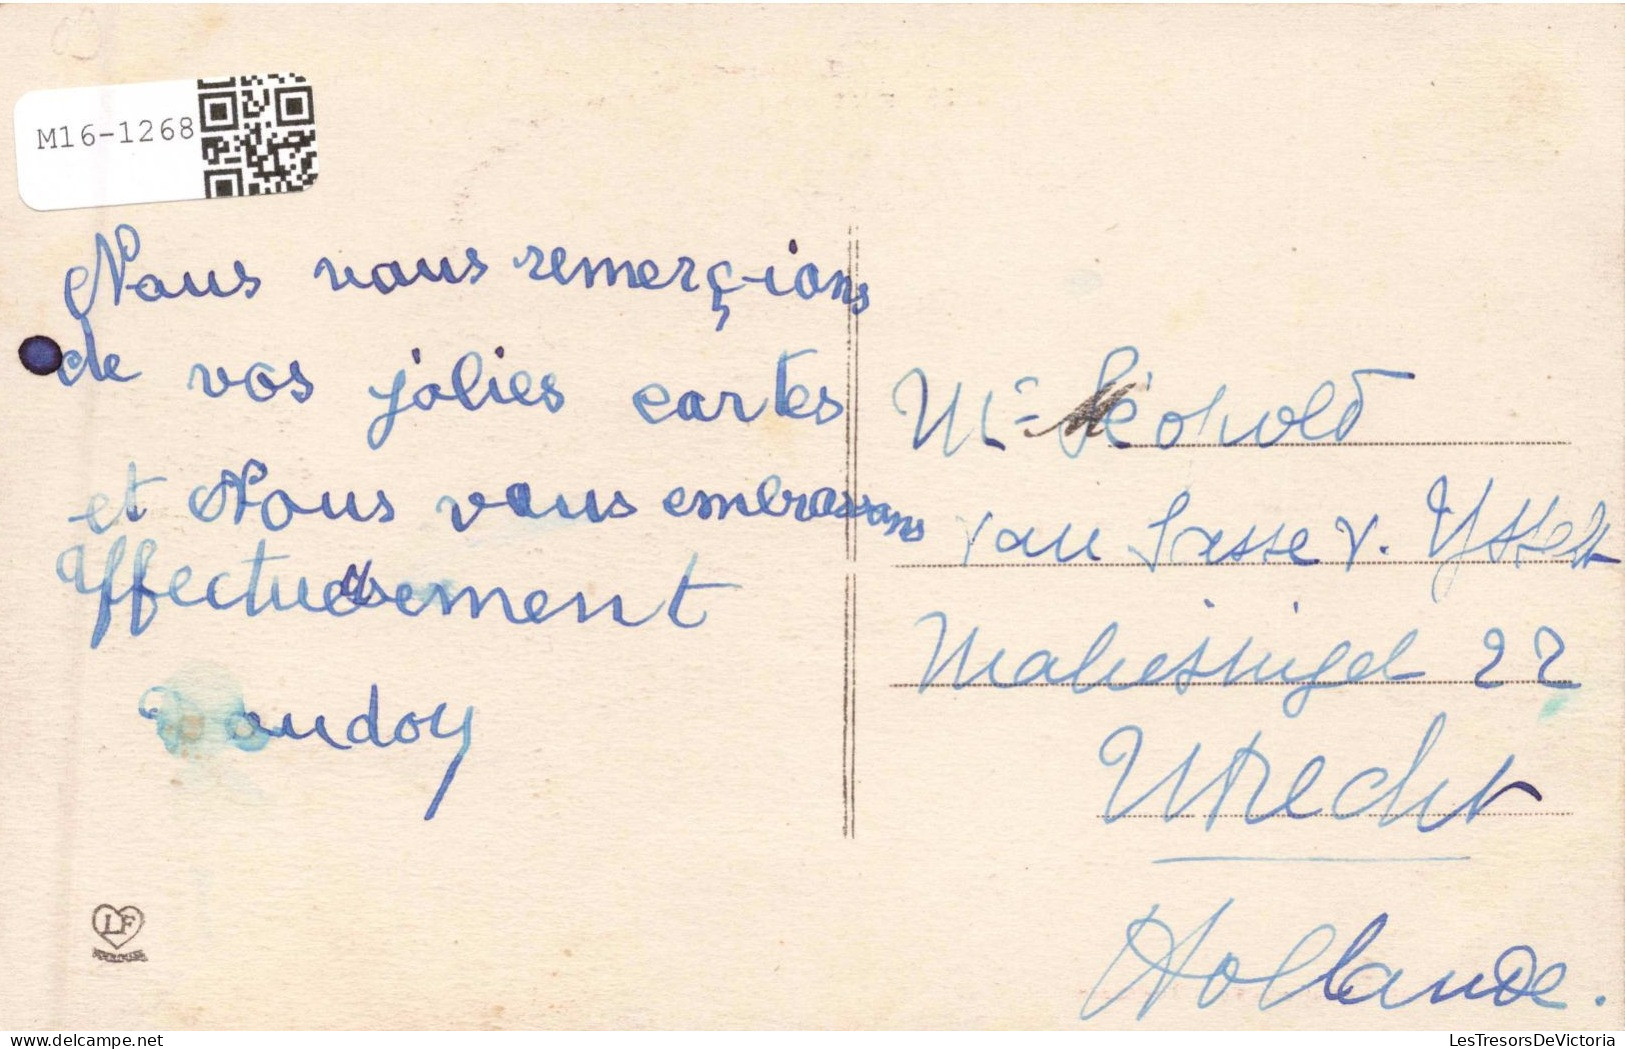 M16-1268
Nous vous remerçions
de vos jolies cartes
et Nous vous embrassons
Affectueusement
Mr Léopold
van Sasse v. Ysselt
Maliesingel 22
Utrecht
Hollande.
LF
LesTresorsDeVictoria